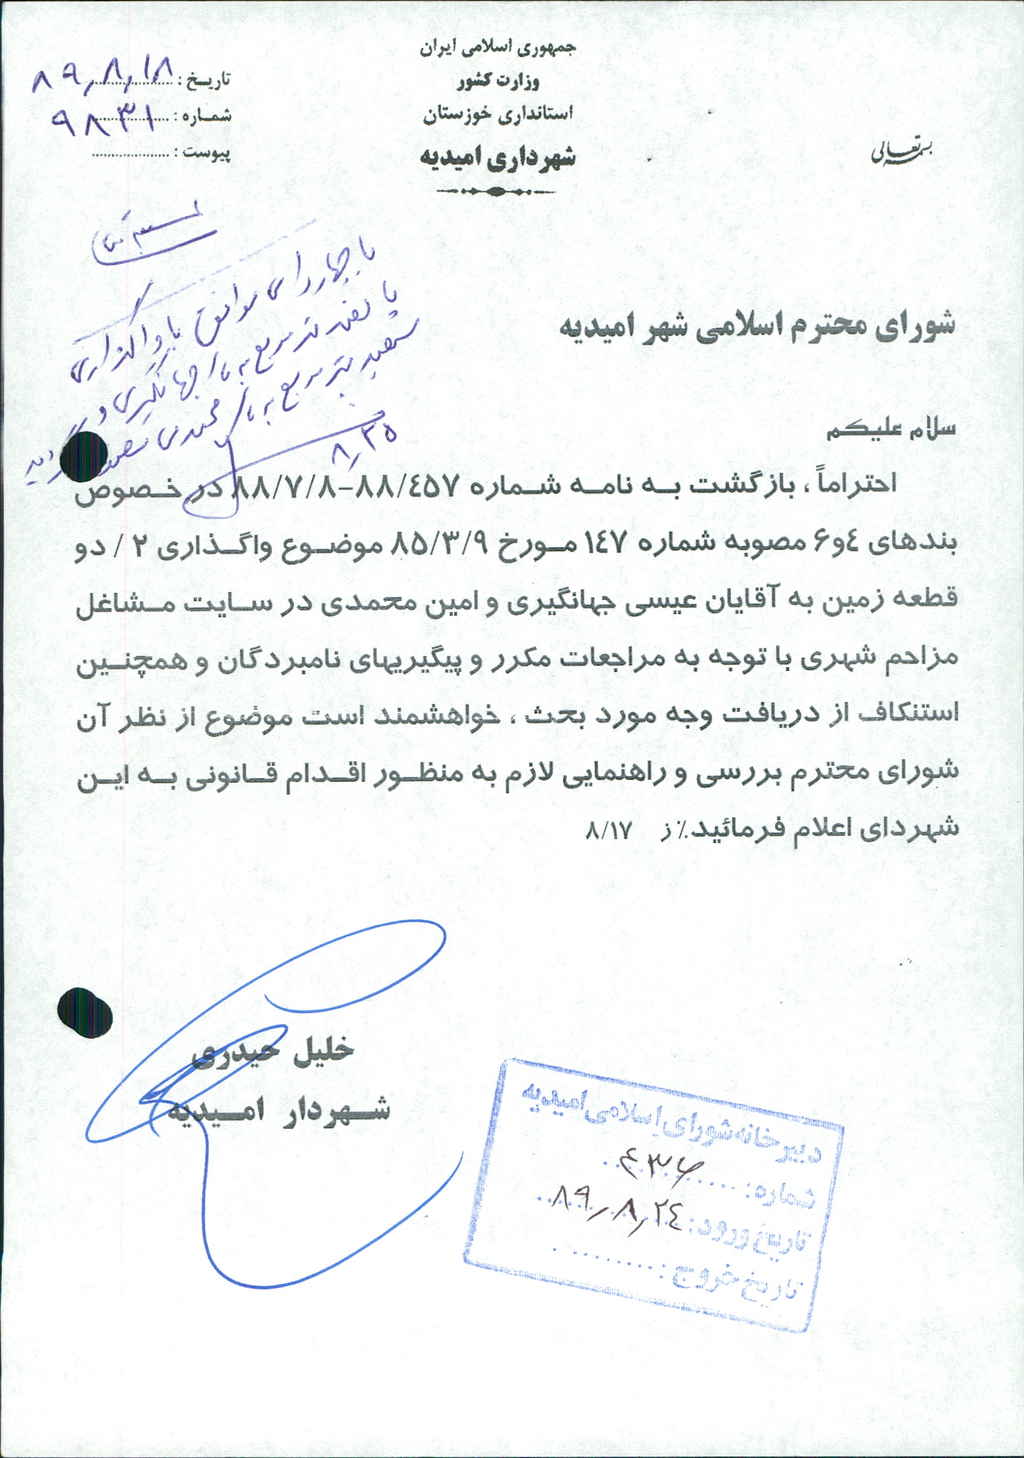 جمهوری اسلامی ایران
وزارت کشور
استانداری خوزستان
شهرداری امیدیه
بسمه تعالی
تاریخ : ۸۹/۸/۱۸
شماره : ۹۸۳۱
پیوست :
بسمه تعالی
با چهار رای موافق با واگذاری
پانصد متر مربع به نام جهانگیری و
متر مربع به نام محمدی
۸/۲۵
شورای محترم اسلامی شهر امیدیه
سلام علیکم
احتراماً ، بازگشت به نامه شماره ۸۸/۴۵۷-۸۸/۷/۸ در خصوص
بندهای ۴و۶ مصوبه شماره ۱۴۷ مورخ ۸۵/۳/۹ موضوع واگذاری ۲ / دو
قطعه زمین به آقایان عیسی جهانگیری و امین محمدی در سایت مشاغل
مزاحم شهری با توجه به مراجعات مکرر و پیگیریهای نامبردگان و همچنین
استنکاف از دریافت وجه مورد بحث ، خواهشمند است موضوع از نظر آن
شورای محترم بررسی و راهنمایی لازم به منظور اقدام قانونی به این
شهردای اعلام فرمائید٪ ز ۸/۱۷
خلیل حیدری
شهردار امیدیه
دبیرخانه شورای اسلامی امیدیه
شماره: ۴۳۶
تاریخ ورود: ۸۹/۸/۲۴
تاریخ خروج :